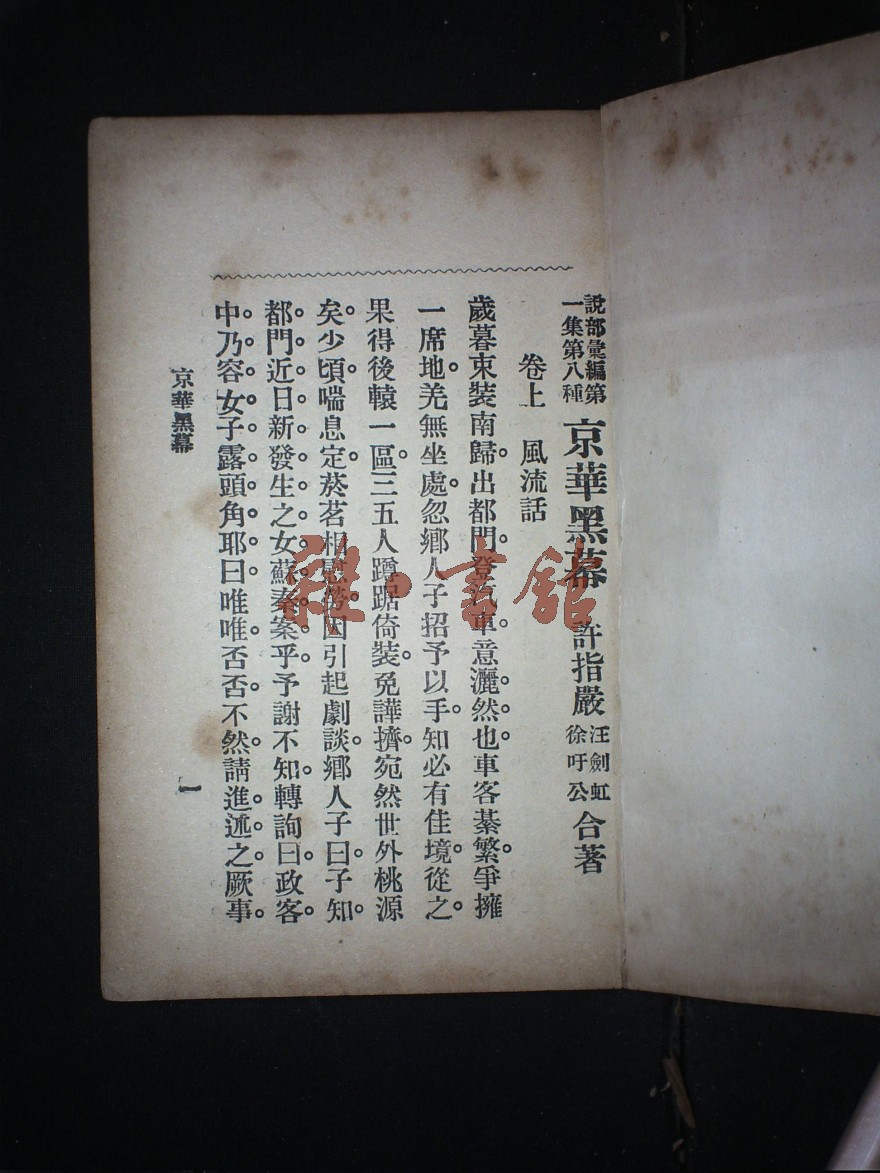 說部彙編第
一集第八種
京華黑幕 許指嚴 汪劍虹 徐吁公 合著
卷上 風流話
歲暮束裝南歸出都門。登汽車。意灑然也。車客綦繁。爭擁
一席地。羌無坐處。忽鄉人子招予以手。知必有佳境。從之。
果得後轅一區。三五人蹲踞倚裝。免譁擠。宛然世外桃源
矣。少頃喘息定。菸茗相慰勞。因引起劇談。鄉人子曰。子知
都門近日新發生之女蘇秦案乎。予謝不知。轉詢曰。政客
中乃容女子露頭角耶。曰唯唯否否不然。請進述之。厥事
京華黑幕
一
雜·書館